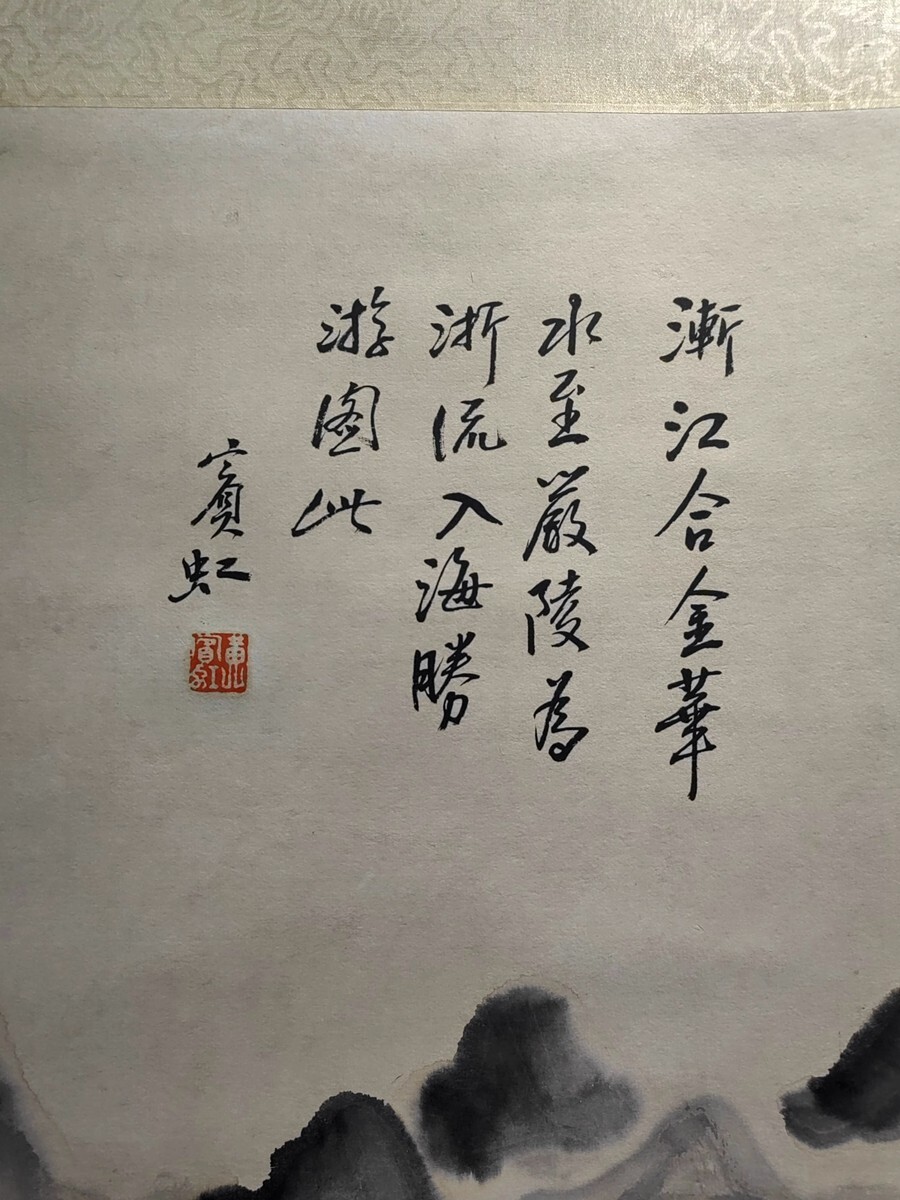 漸江合金華
水至嚴陵為
浙流入海勝
游圖此
賓虹
黃賓虹